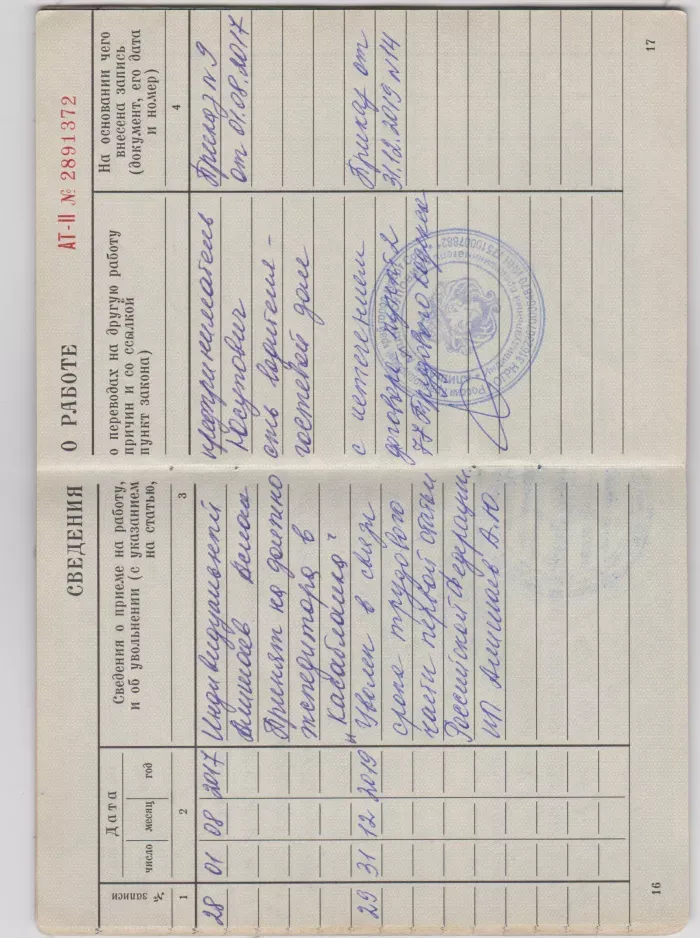 АТ-II № 2891372
СВЕДЕНИЯ О РАБОТЕ
№ записи
Дата
число месяц год
Сведения о приеме на работу, о переводах на другую работу
и об увольнении (с указанием причин и со ссылкой
на статью, пункт закона)
На основании чего
внесена запись
(документ, его дата
и номер)
1 2 3 4
28 01 08 2017 Индивидуальный предприниматель Приказ № 9
Юсупович от 01.08.2017
Принят на должно сть водителя-
экспедитора в гостевой дом
"Касабланка"
29 31 12 2019 Уволен в связи с истечением Приказ от
срока трудового договора, пункт 2 31.12.2019 № 14
части первой статьи 77 Трудового кодекса
Российской Федерации
ИП Алишаев А.Ю.
16 17